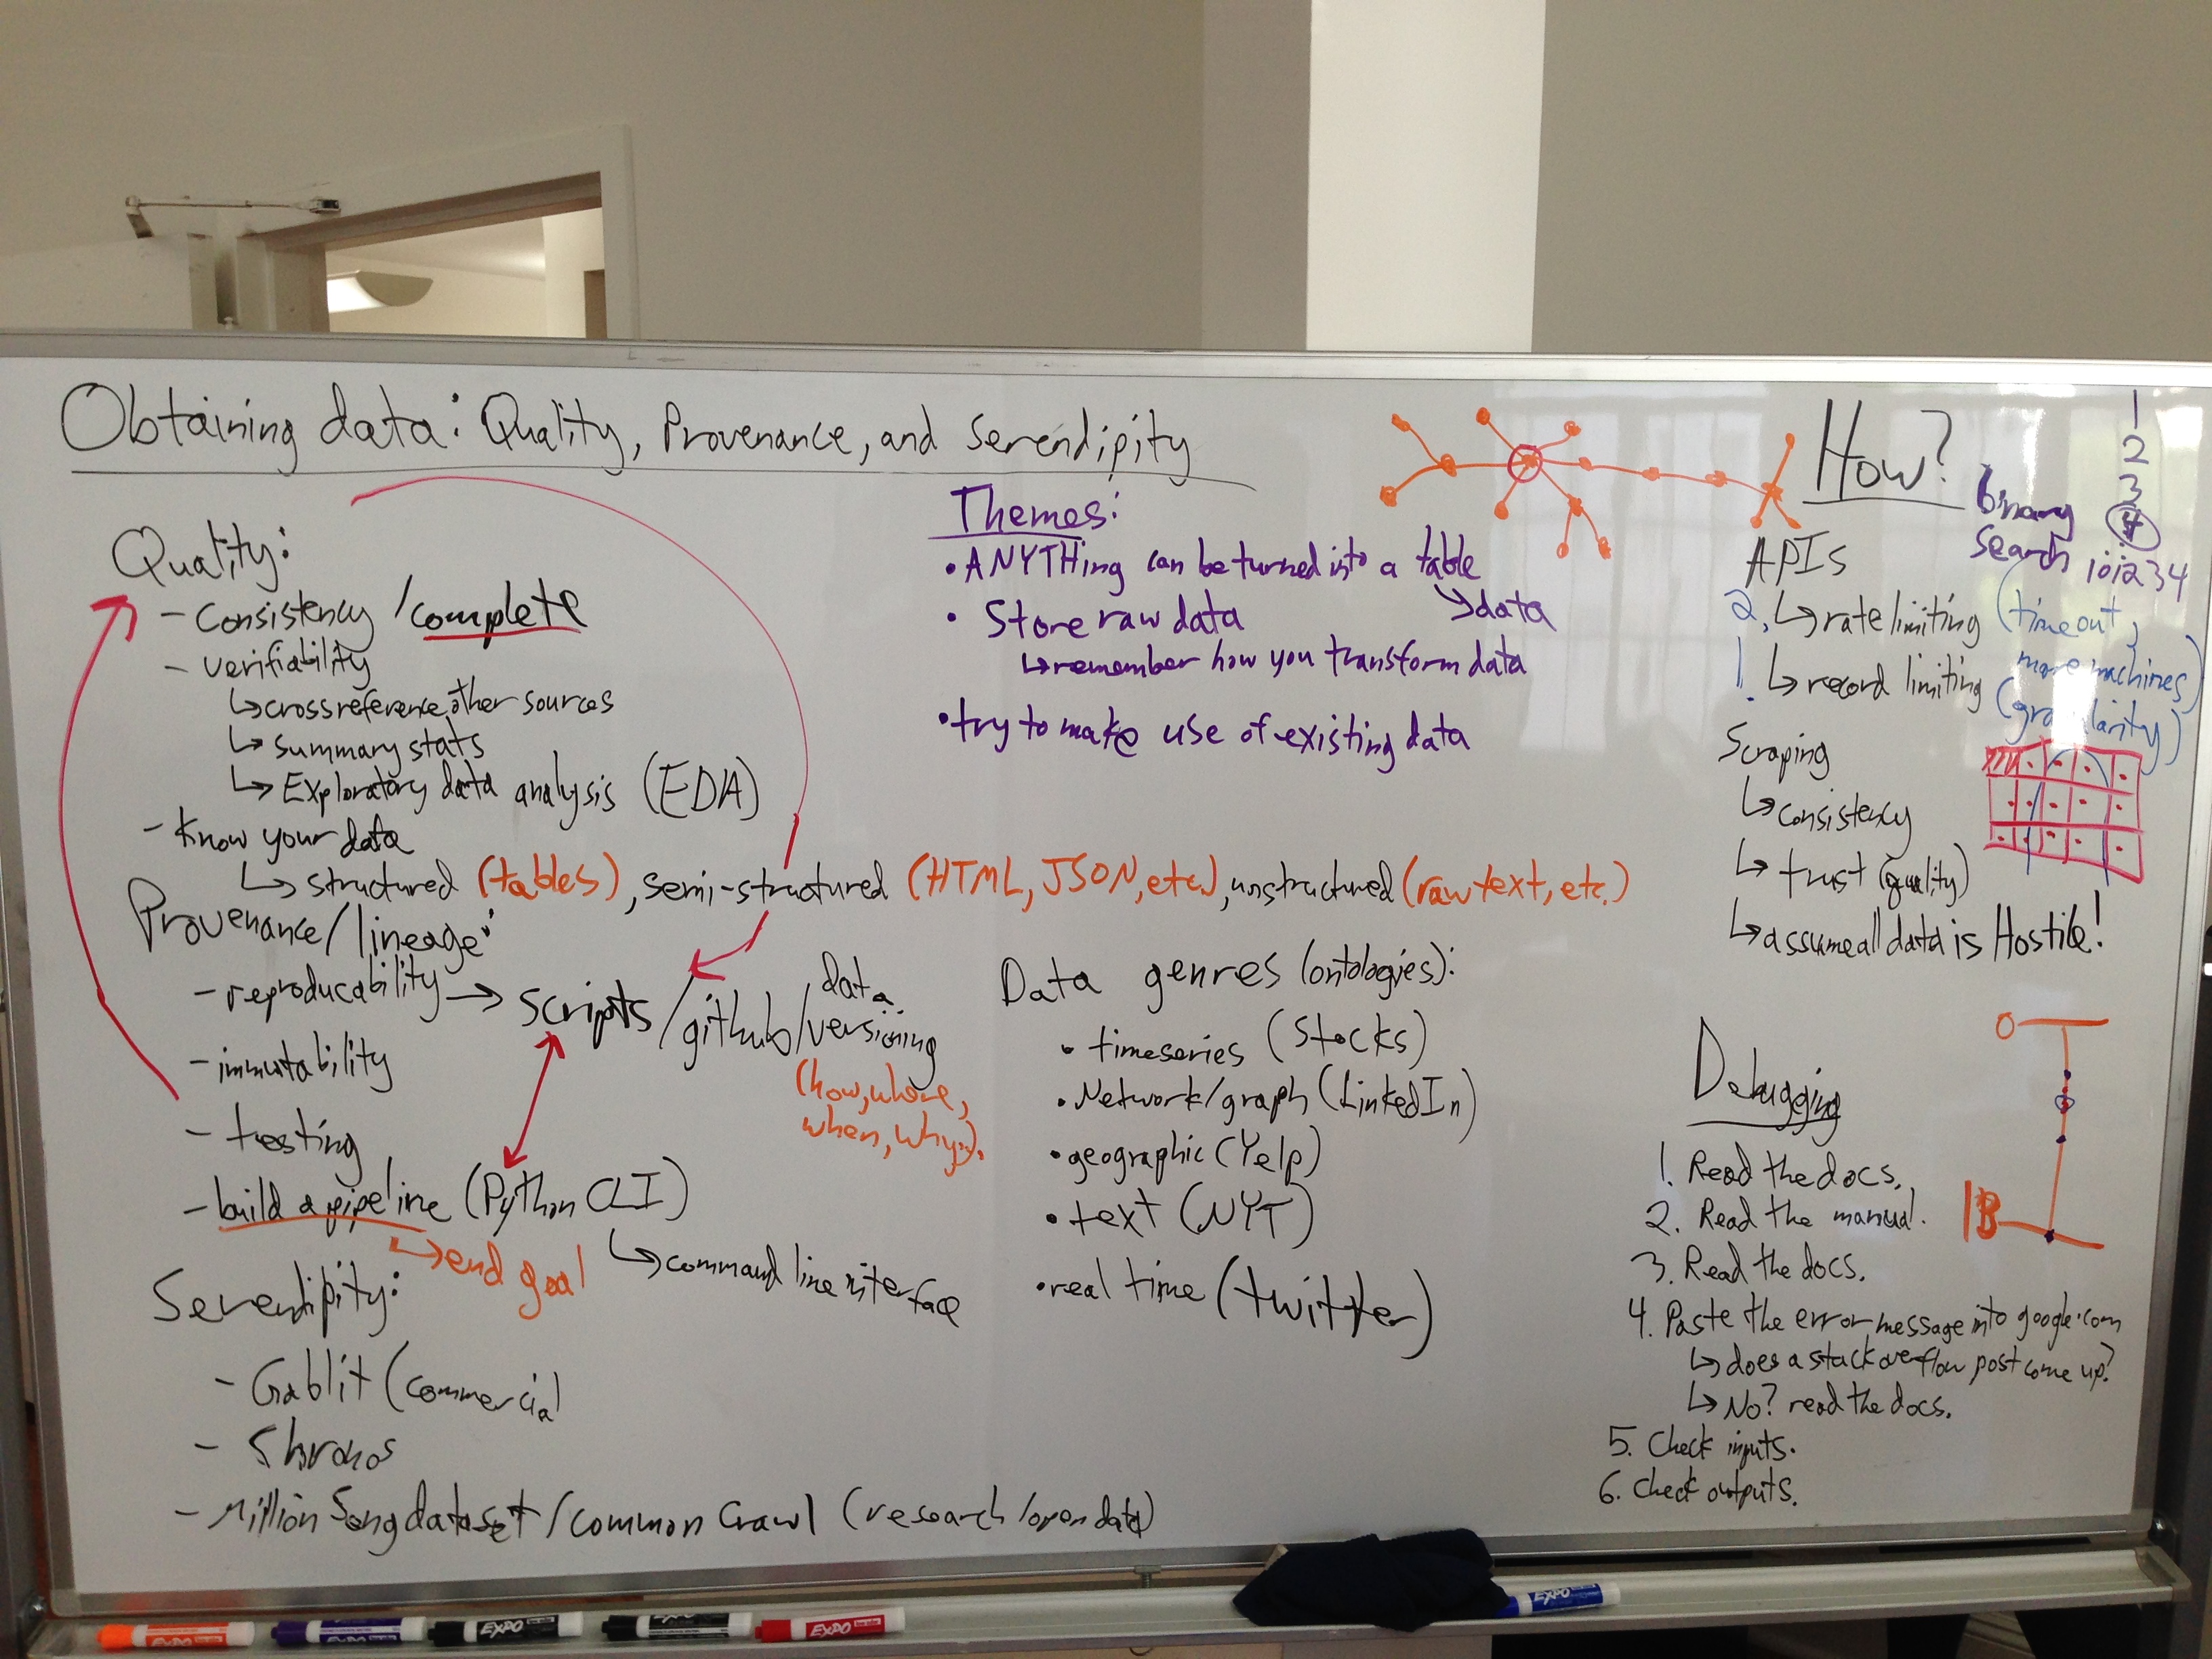 Obtaining data: Quality, Provenance, and Serendipity
Quality:
- Consistency / complete
- verifiability
↳ cross reference other sources
↳ summary stats
↳ Exploratory data analysis (EDA)
- Know your data
↳ structured (tables), semi-structured (HTML, JSON, etc.), unstructured (raw text, etc.)
Provenance/lineage:
- reproducability → scripts / github / data versioning
(how, where,
when, why).
- immutability
- testing
- build a pipeline (Python CLI)
↳ end goal
↳ command line interface
Serendipity:
- Gablit (commercial
-
- Million Song dataset / common Crawl (research / open data)
Themes:
• ANYTHing can be turned into a table
↳ data
• Store raw data
↳ remember how you transform data
• try to make use of existing data
Data genres (ontologies):
• timeseries (Stocks)
• Network/graph (LinkedIn)
• geographic (Yelp)
• text (NYT)
• real time (twitter)
How?
binary
search
1
2
3
4
234
APIs
2. ↳ rate limiting (timeout,
more machines)
1. ↳ record limiting (granularity)
Scraping
↳ consistency
↳ trust (quality)
↳ assume all data is Hostile!
Debugging
1. Read the docs.
2. Read the manual.
3. Read the docs.
4. Paste the error message into google.com
↳ does a stack overflow post come up?
↳ No? read the docs.
5. Check inputs.
6. Check outputs.
0
1B
EXPO
EXPO
EXPO
EXPO
EXPO